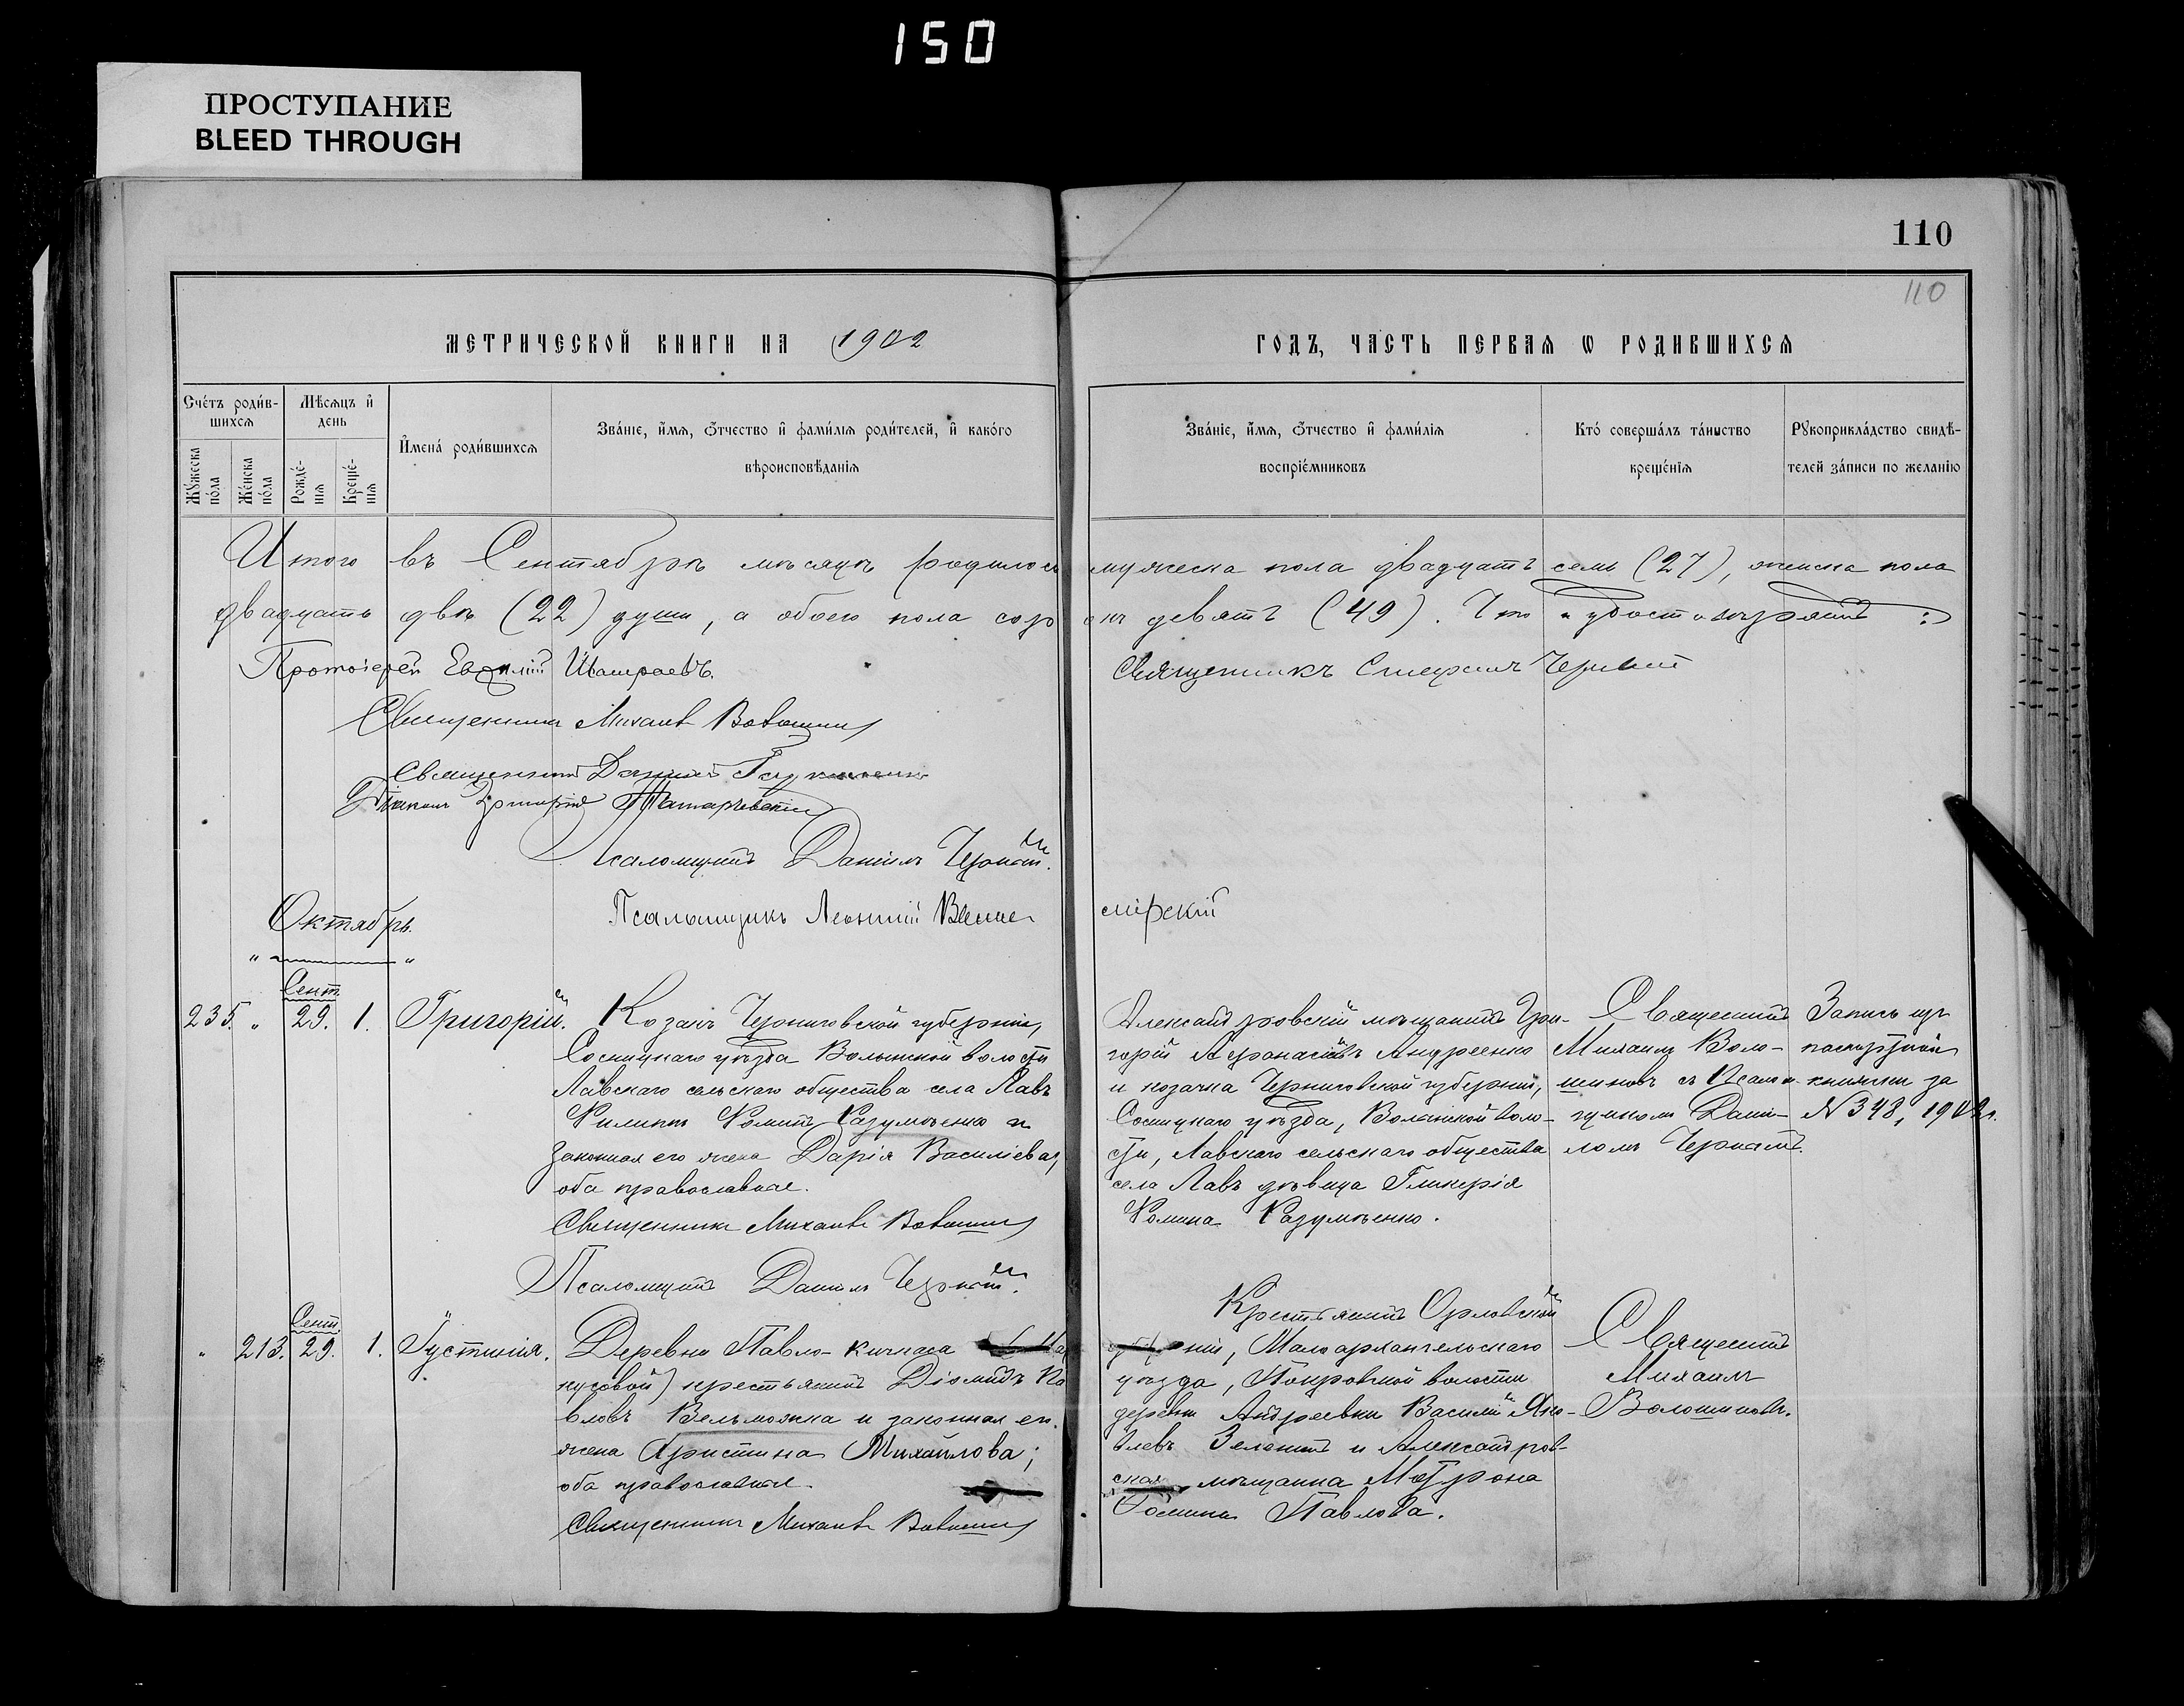 150
ПРОСТУПАНИЕ
BLEED THROUGH
110
110
МЕТРИЧЕСКОЙ КНИГИ НА 1902
ГОДЪ, ЧАСТЬ ПЕРВАѦ Ѡ РОДИВШИХСѦ
Счётъ роди́в-
шихсѧ
Мѣсѧцъ и҆
день
Мꙋ́жеска по́ла
Же́нска по́ла
Рожде́-нїѧ
Креще́-нїѧ
И҆мена̀ роди́вшихсѧ
Зва́нїе, и҆́мѧ, ѻ҆́тчество и҆ фами́лїѧ роди́телей, и҆ како́гѡ
вѣроисповѣ́данїѧ
Зва́нїе, и҆́мѧ, ѻ҆́тчество и҆ фами́лїѧ
воспрїе́мниковъ
Кто̀ соверша́лъ та́инство
креще́нїѧ
Рꙋкоприкла́дство свидѣ́-
телей за́писи по жела́нїю
Итого въ Сентябрѣ мѣсяцѣ родилось мужеска пола двадцать семь (27), женска пола
двадцать двѣ (22) души, а обоего пола сорокъ девять (49). Что и удостовѣряютъ:
Протоіерей
Священникъ
Священникъ Михаилъ Волошиновъ
Священникъ
Псаломщикъ Даніилъ
Псаломщикъ Леонтій
смірскій
Октябрь.
Сент.
235. " 29. 1. Григорій.
Козакъ Черниговской губерніи,
Сосницкаго уѣзда Волынской волости
Лавскаго сельскаго общества села Лавъ
Филиппъ Ѳоминъ Разумѣенко и
законная его жена Дарія Василіева,
оба православные.
Священникъ Михаилъ Волошиновъ
Псаломщикъ Даніилъ
Александровскій мѣщанинъ Гри-
горій Аѳанасіевъ Андреенко
и козачка Черниговской губерніи,
Сосницкаго уѣзда, Волынской воло-
сти, Лавскаго сельскаго общества
села Лавъ дѣвица Гликерія
Ѳомина Разумѣенко.
Священникъ
Михаилъ Воло-
шиновъ съ Псалом-
щикомъ Дани-
ломъ
Запись изъ
паспортной
книжки за
№ 348, 1902 г.
Сент.
" 213. 29. 1. Іустинія.
Деревни Павло-Кичкаса
кусовой) крестьянинъ Діомидъ Па
вловъ Вельможка и законная его
жена Христина Михайлова;
оба православные.
Священникъ Михаилъ Волошиновъ
Крестьянинъ Орловской
ніи, Малоархангельскаго
уѣзда, Покровской волости
деревни Андреевки Василій Яко-
влевъ и Александров-
ская мѣщанка Матрона
Ѳомина Павлова.
Священникъ
Михаилъ
Волошиновъ.